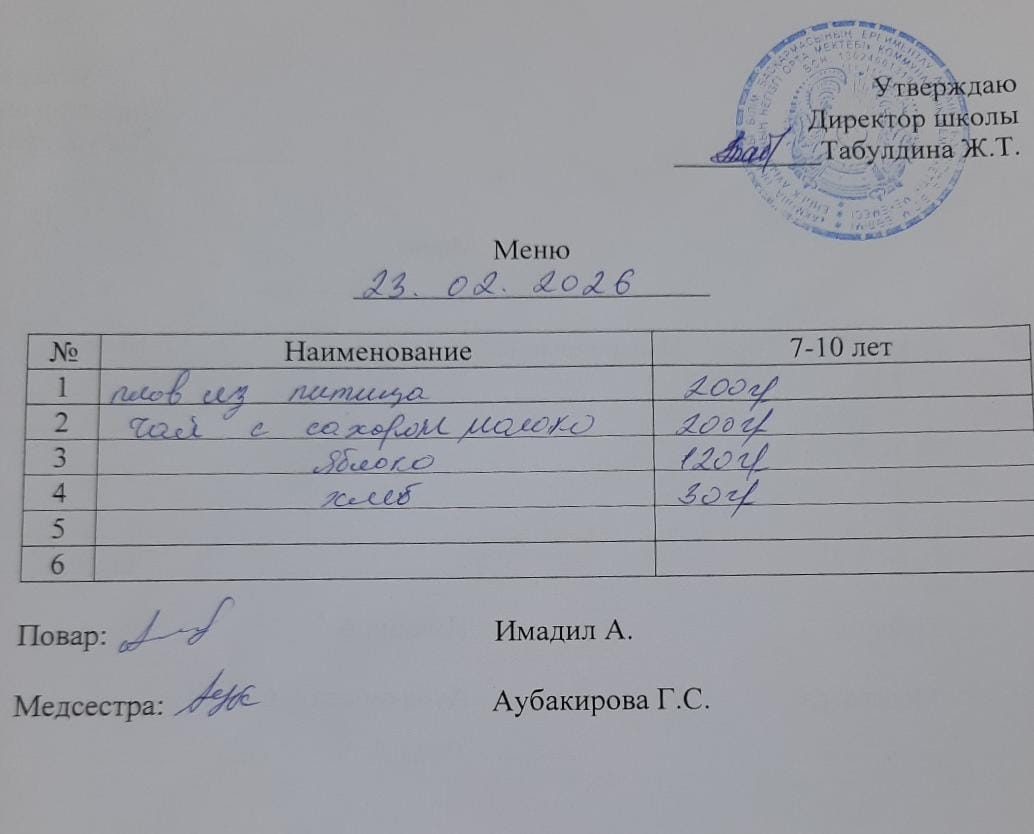 Утверждаю
Директор школы
Табулдина Ж.Т.
Меню
23. 02. 2026
№ Наименование 7-10 лет
1 плов из питица 200гр
2 чай с сахором малоко 200гр
3 яблоко 120гр
4 хлеб 30гр
5
6
Повар: Имадил А.
Медсестра: Аубакирова Г.С.